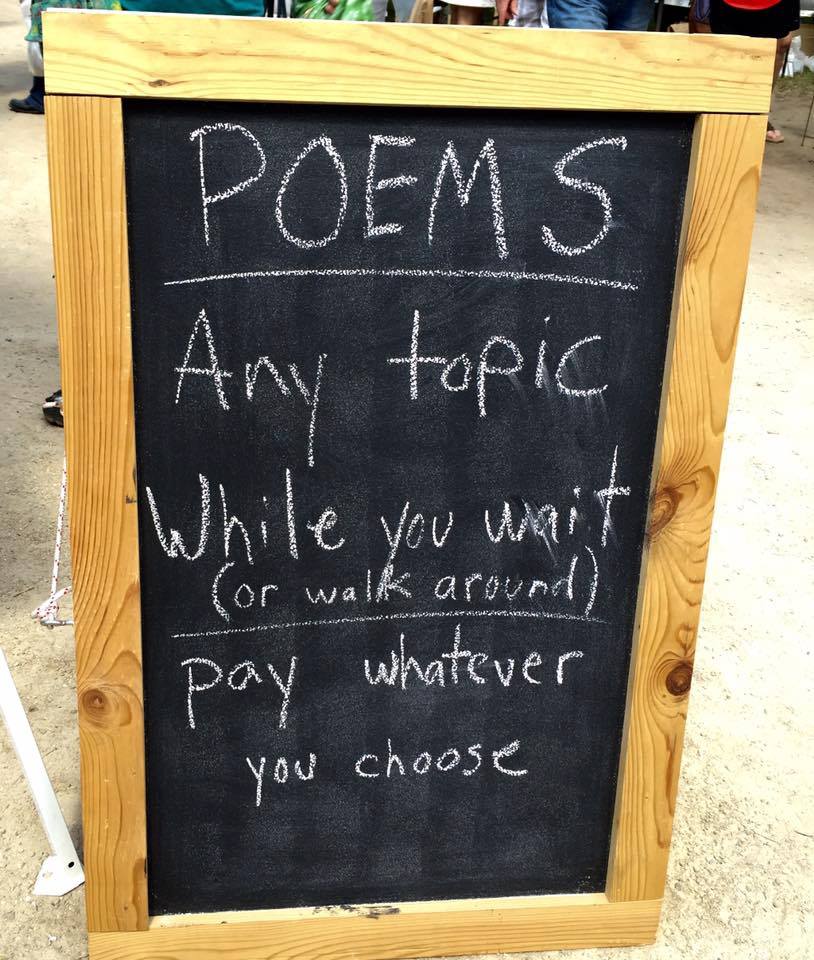 POEMS
Any topic
While you wait
(or walk around)
pay whatever
you choose